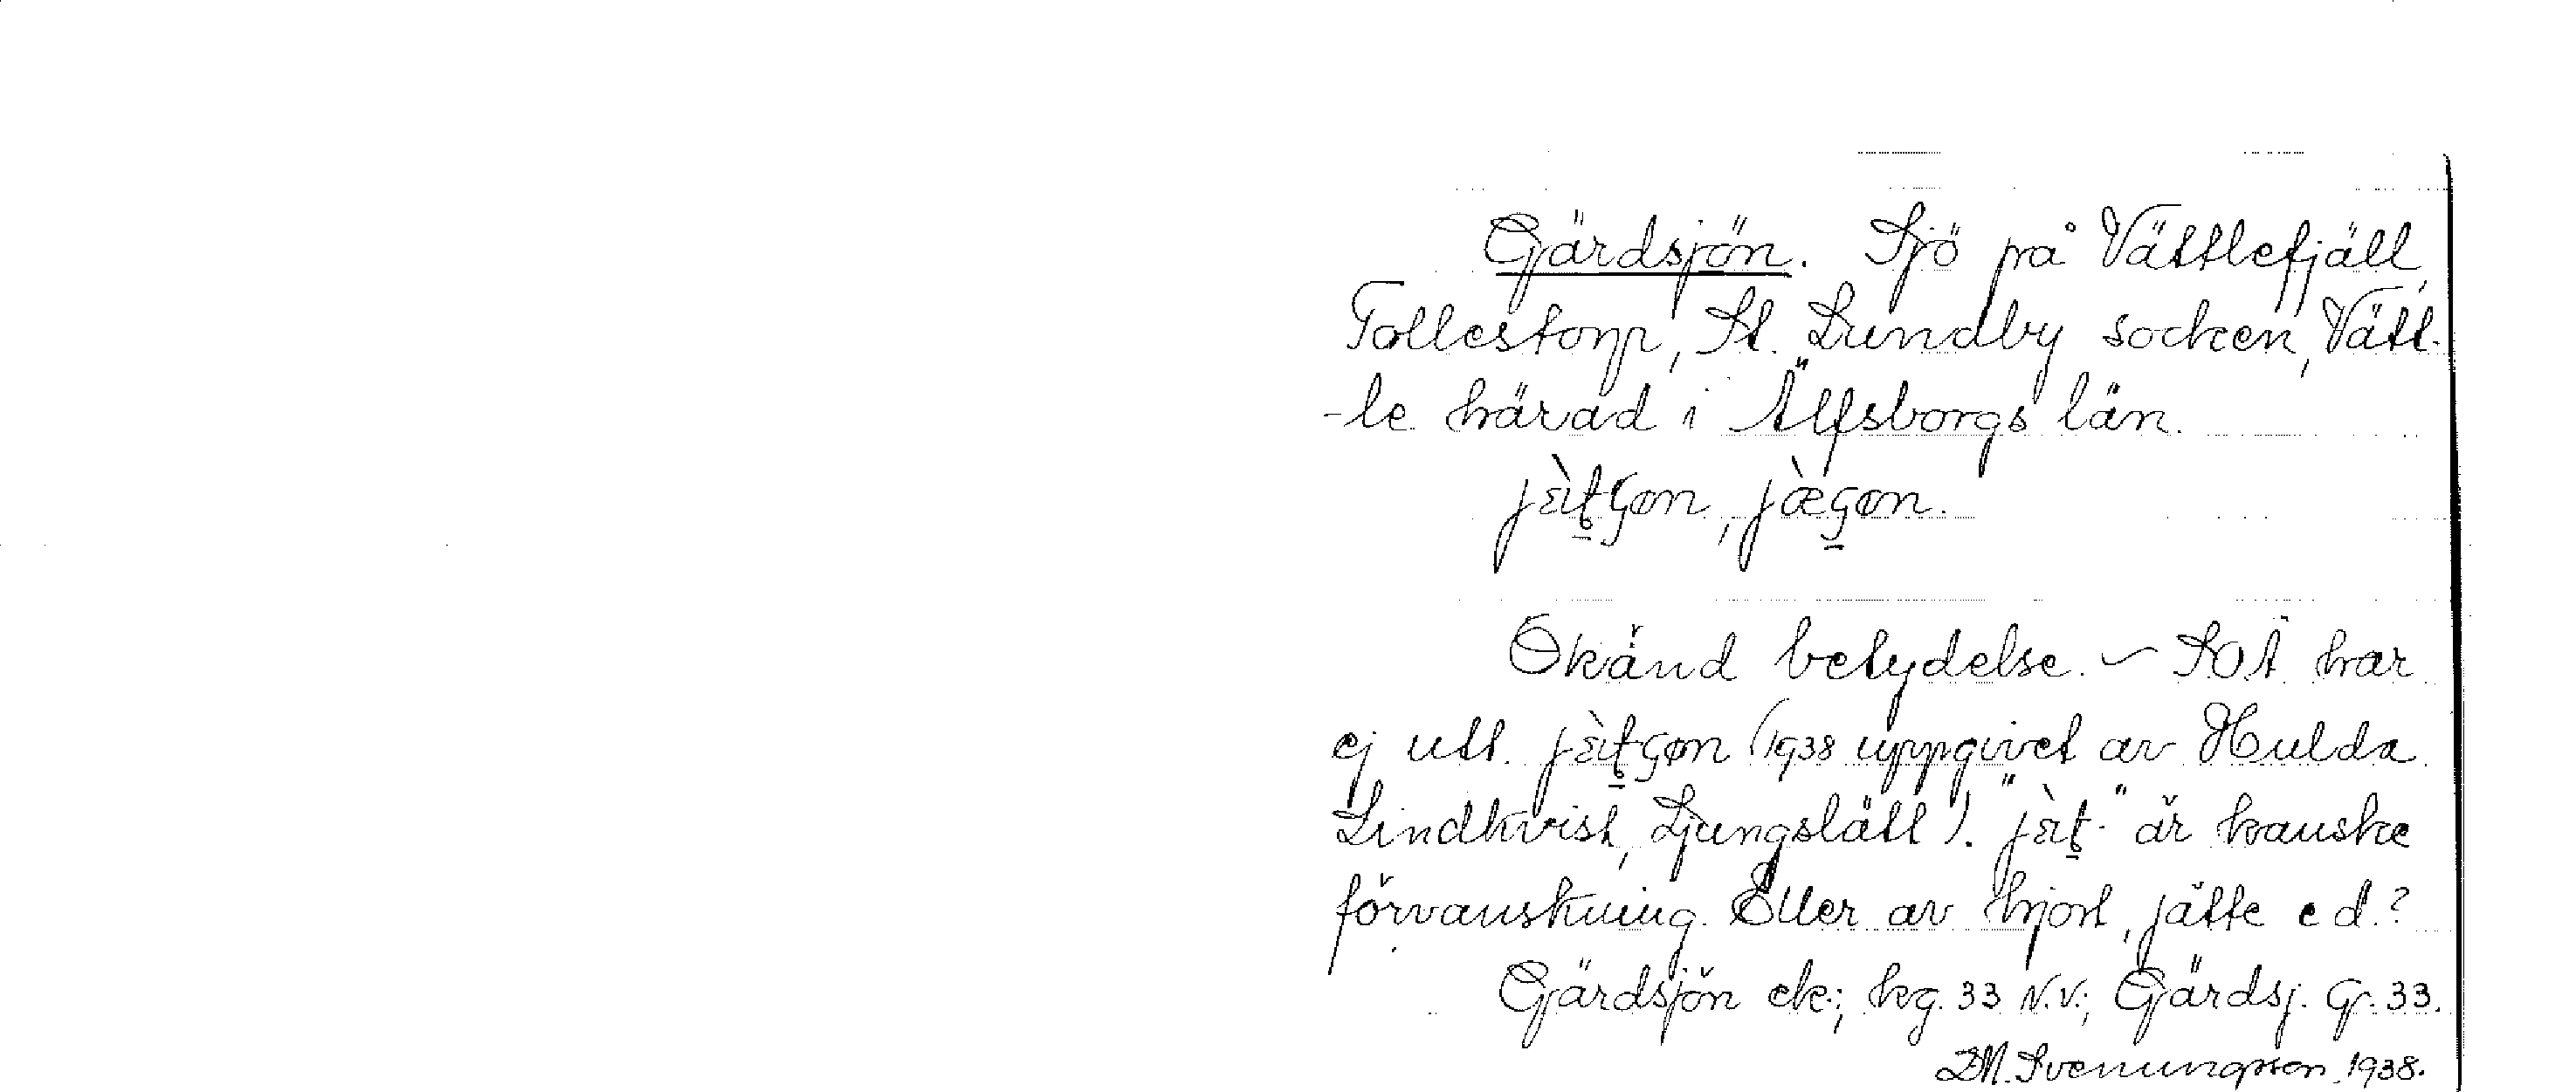 Gärdsjön. Sjö på Vättlefjäll,
Tollestorp, St. Lundby socken, Vätt-
-le härad i Älfsborgs län.
Okänd betydelse. ~ SOÄ har
ej utt. (1938 uppgivet av Hulda
Lindkvist, Ljungslätt). är kanske
förvanskning. Eller av hjort, jätte e d.?
Gärdsjön ek.; kg. 33 N.V.; Gärdsj. Gr. 33.
Svenungsson 1938.